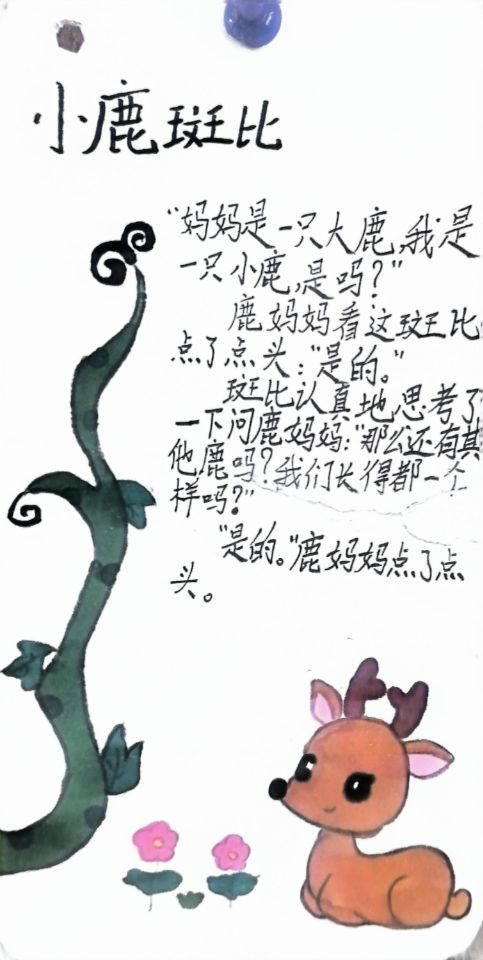 小鹿斑比
“妈妈是一只大鹿,我是
一只小鹿,是吗?”
鹿妈妈看这斑比
点了点头:“是的。”
斑比认真地思考了
一下问鹿妈妈:“那么还有其
他鹿吗?我们长得都一个
样吗?”
“是的。”鹿妈妈点了点
头。